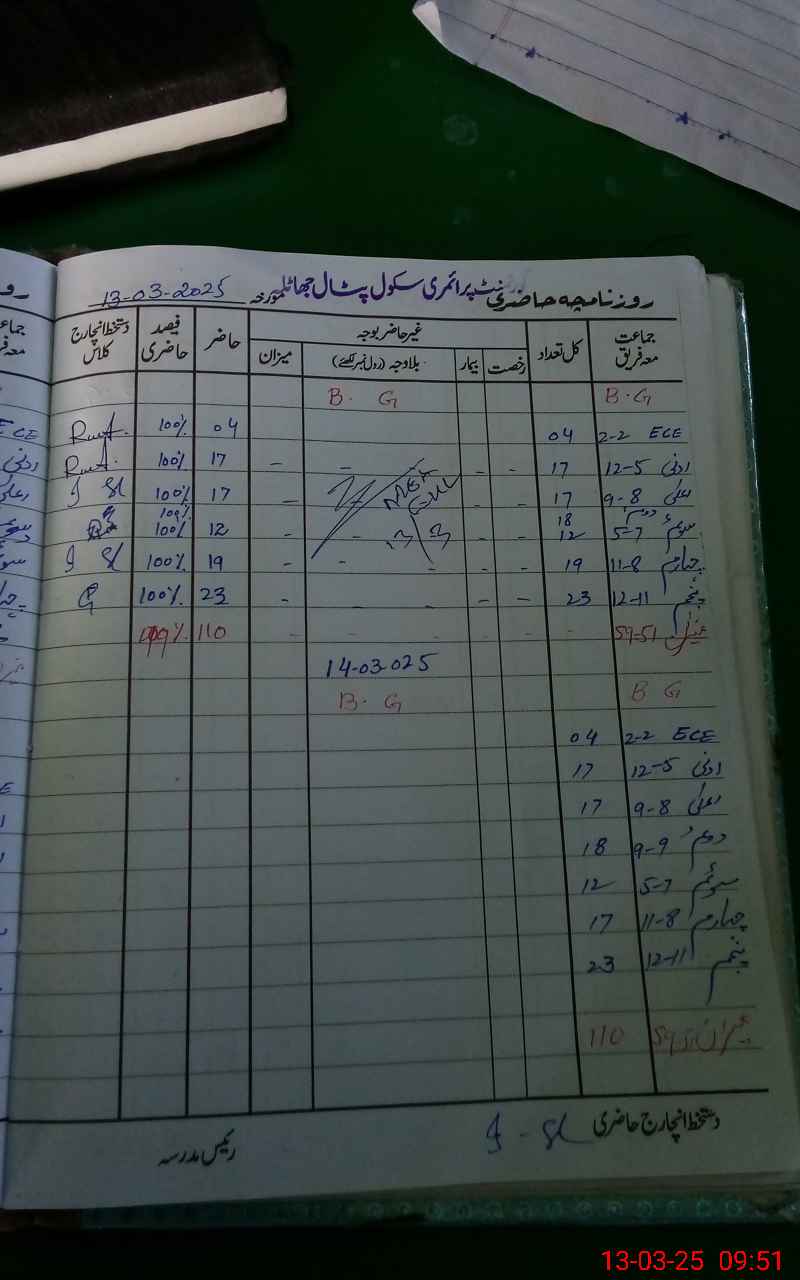 روزنامچہ حاضری گورنمنٹ پرائمری سکول پٹال جھاٹلہ مورخہ 13-03-2025
جماعت معہ فریق کل تعداد غیر حاضر بوجہ حاضر فیصد حاضری دستخط انچارج کلاس
رخصت بیمار بلاوجہ (رول نمبر لکھئے) میزان
B.G B. G
ECE 2-2 04 04 100%
ادنیٰ 12-5 17 - - - 17 100%
اعلیٰ 9-8 17 - - - 17 100%
دوم 18 100%
سوئم 5-7 12 - - - - 12 100%
چہارم 11-8 19 - - - 19 100%
پنجم 12-11 23 - - - - - 23 100%
میزان 59-51 - - - - - 110
14-03-025
B G B. G
ECE 2-2 04
ادنیٰ 12-5 17
اعلیٰ 9-8 17
دوم 9-9 18
سوئم 5-7 12
چہارم 11-8 17
پنجم 12-11 23
میزان 110
دستخط انچارج حاضری
رئیس مدرسہ
13-03-25 09:51